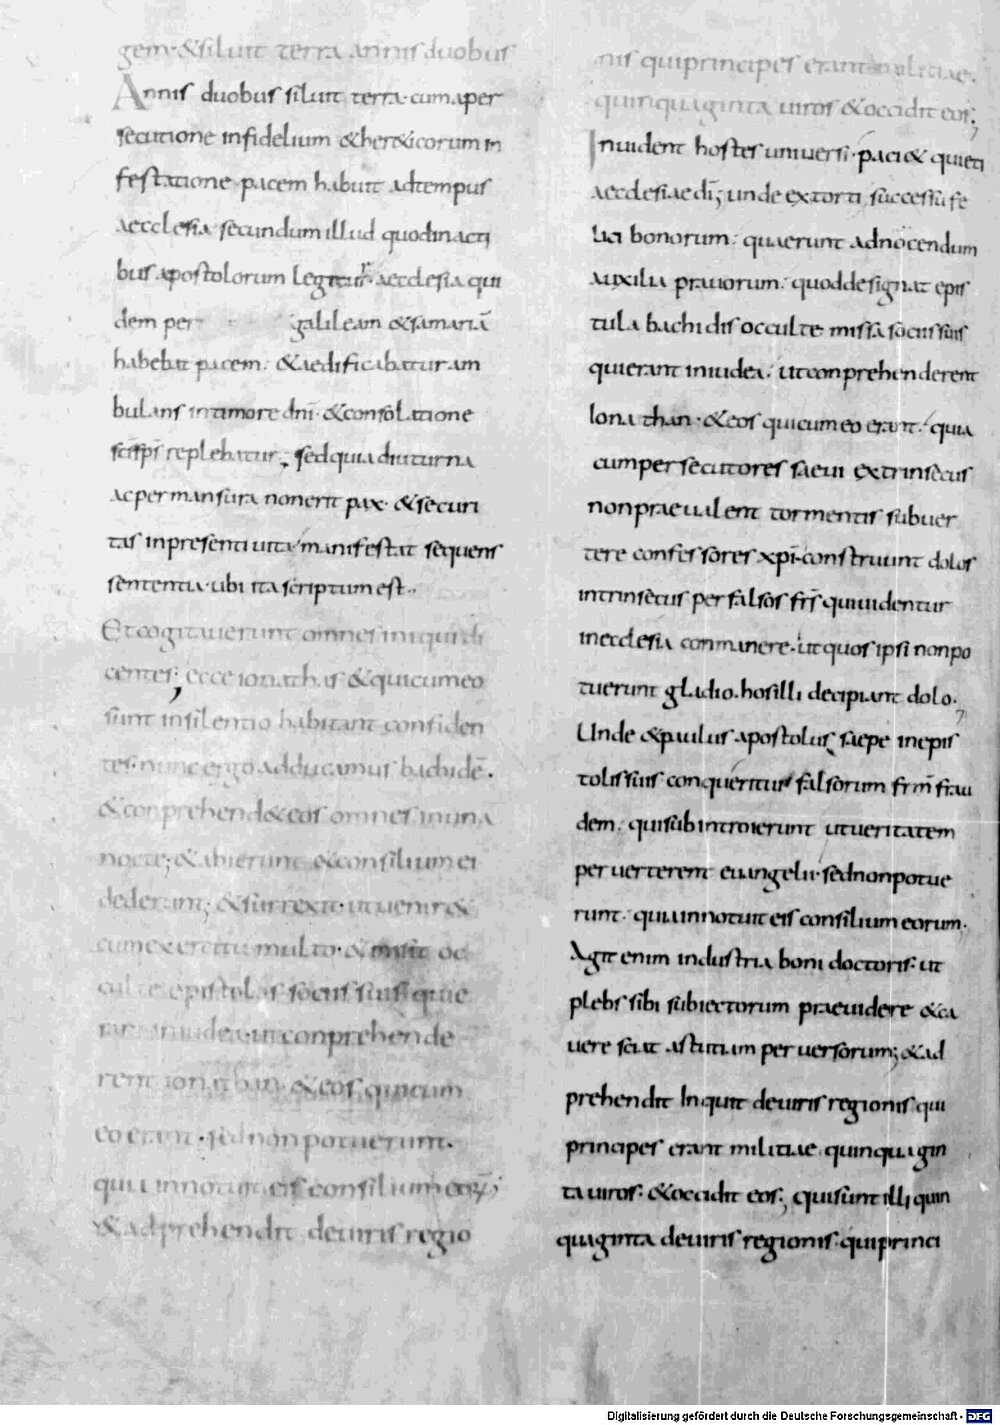 gem·&siluit terra annis duobus
Annis duobus siluit terra·cumaper
secutione infidelium &her&icorum in
festatione·pacem habuit adtempus
aecclesia·secundum illud quodinacti
bus apostolorum legitur·aecclesia qui
dem per galileam &samariā
habebat pacem: &aedificabatur am
bulans intimore dn̄i·&consolatione
sc̄isp̄s replebatur; sedquia diuturna
acper mansura nonerit pax·&securi
tas inpresenti uita manifestat sequens
sententia·ubi ita scriptum est·
Etcogitauerunt omnes iniqui di
centes; ecce ionathas &quicumeo
sunt insilentio habitant confiden
tes·nunc ergo adducamus bachidē·
&conprehend&eos omnes inuna
nocte; &abierunt &consilium ei
dederunt; &surrexit·utuenir&
cumexercitu multo·&misit oc
culte epistolas sociis suis·que
rant iniudea·utconprehende
rent ionathan·&eos quicum
eo erant·sednonpotuerunt·
quia innotuit eis consilium eoꝝ;
&adprehendit deuiris regio
nis quiprincipes erant militiae·
quinquaginta uiros &occidit eos;
Inuident hostes uniuersi·paci& quieti
aecclesiae dī; unde extorti successu fe
lici bonorum: quaerunt adnocendum
auxilia prauorum: quoddesignat epis
tula bachidis occulte missa sociis suis
quierant iniudea: utconprehenderent
Ionathan·&eos quicumeo erant: quia
cumpersecutores saeui extrinsecus
nonpraeualent tormentis subuer
tere confessores xp̄i·construunt dolos
intrinsecus per falsos frs̄ quiuidentur
inecclesia conmanere·ut quos ipsi nonpo
tuerunt gladio·hos illi decipiant dolo·
Unde &paulus apostolus saepe inepis
tolis suis conqueritur falsorum frm̄ frau
dem: quisubintroierunt utueritatem
peruerterent euangelii·sednonpotue
runt: quiainnotuit eis consilium eorum·
Agit enim industria boni doctoris·ut
plebs sibi subiectorum praeuidere &ca
uere sciat astutiam peruersorum; &ad
prehendit Inquit deuiris regionis qui
principes erant militiae quinquagin
ta uiros: &occidit eos; quisunt illi quin
quaginta deuiris regionis·quiprinci
Digitalisierung gefördert durch die Deutsche Forschungsgemeinschaft - DFG